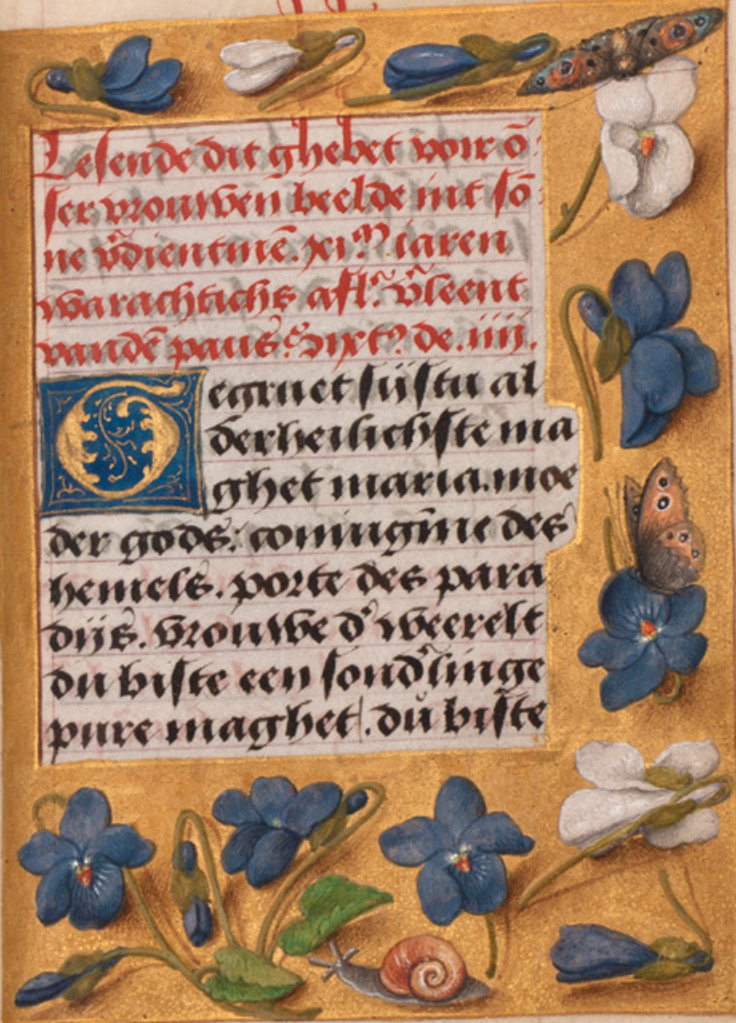 Lesende dit ghebet voir ō
ser vrouwen beelde int sō
ne v̄dientmē. xi.ᴹ iaren
warachtichs afl.ᵗ v̄leent
vandē paus
de .iiii.
Gegruet sijstu al
derheilichste ma
ghet maria. moe
der gods. coninginne des
hemels. porte des para
dijs. vrouwe d' weerelt
du biste een sond'linge
pure maghet. du biste